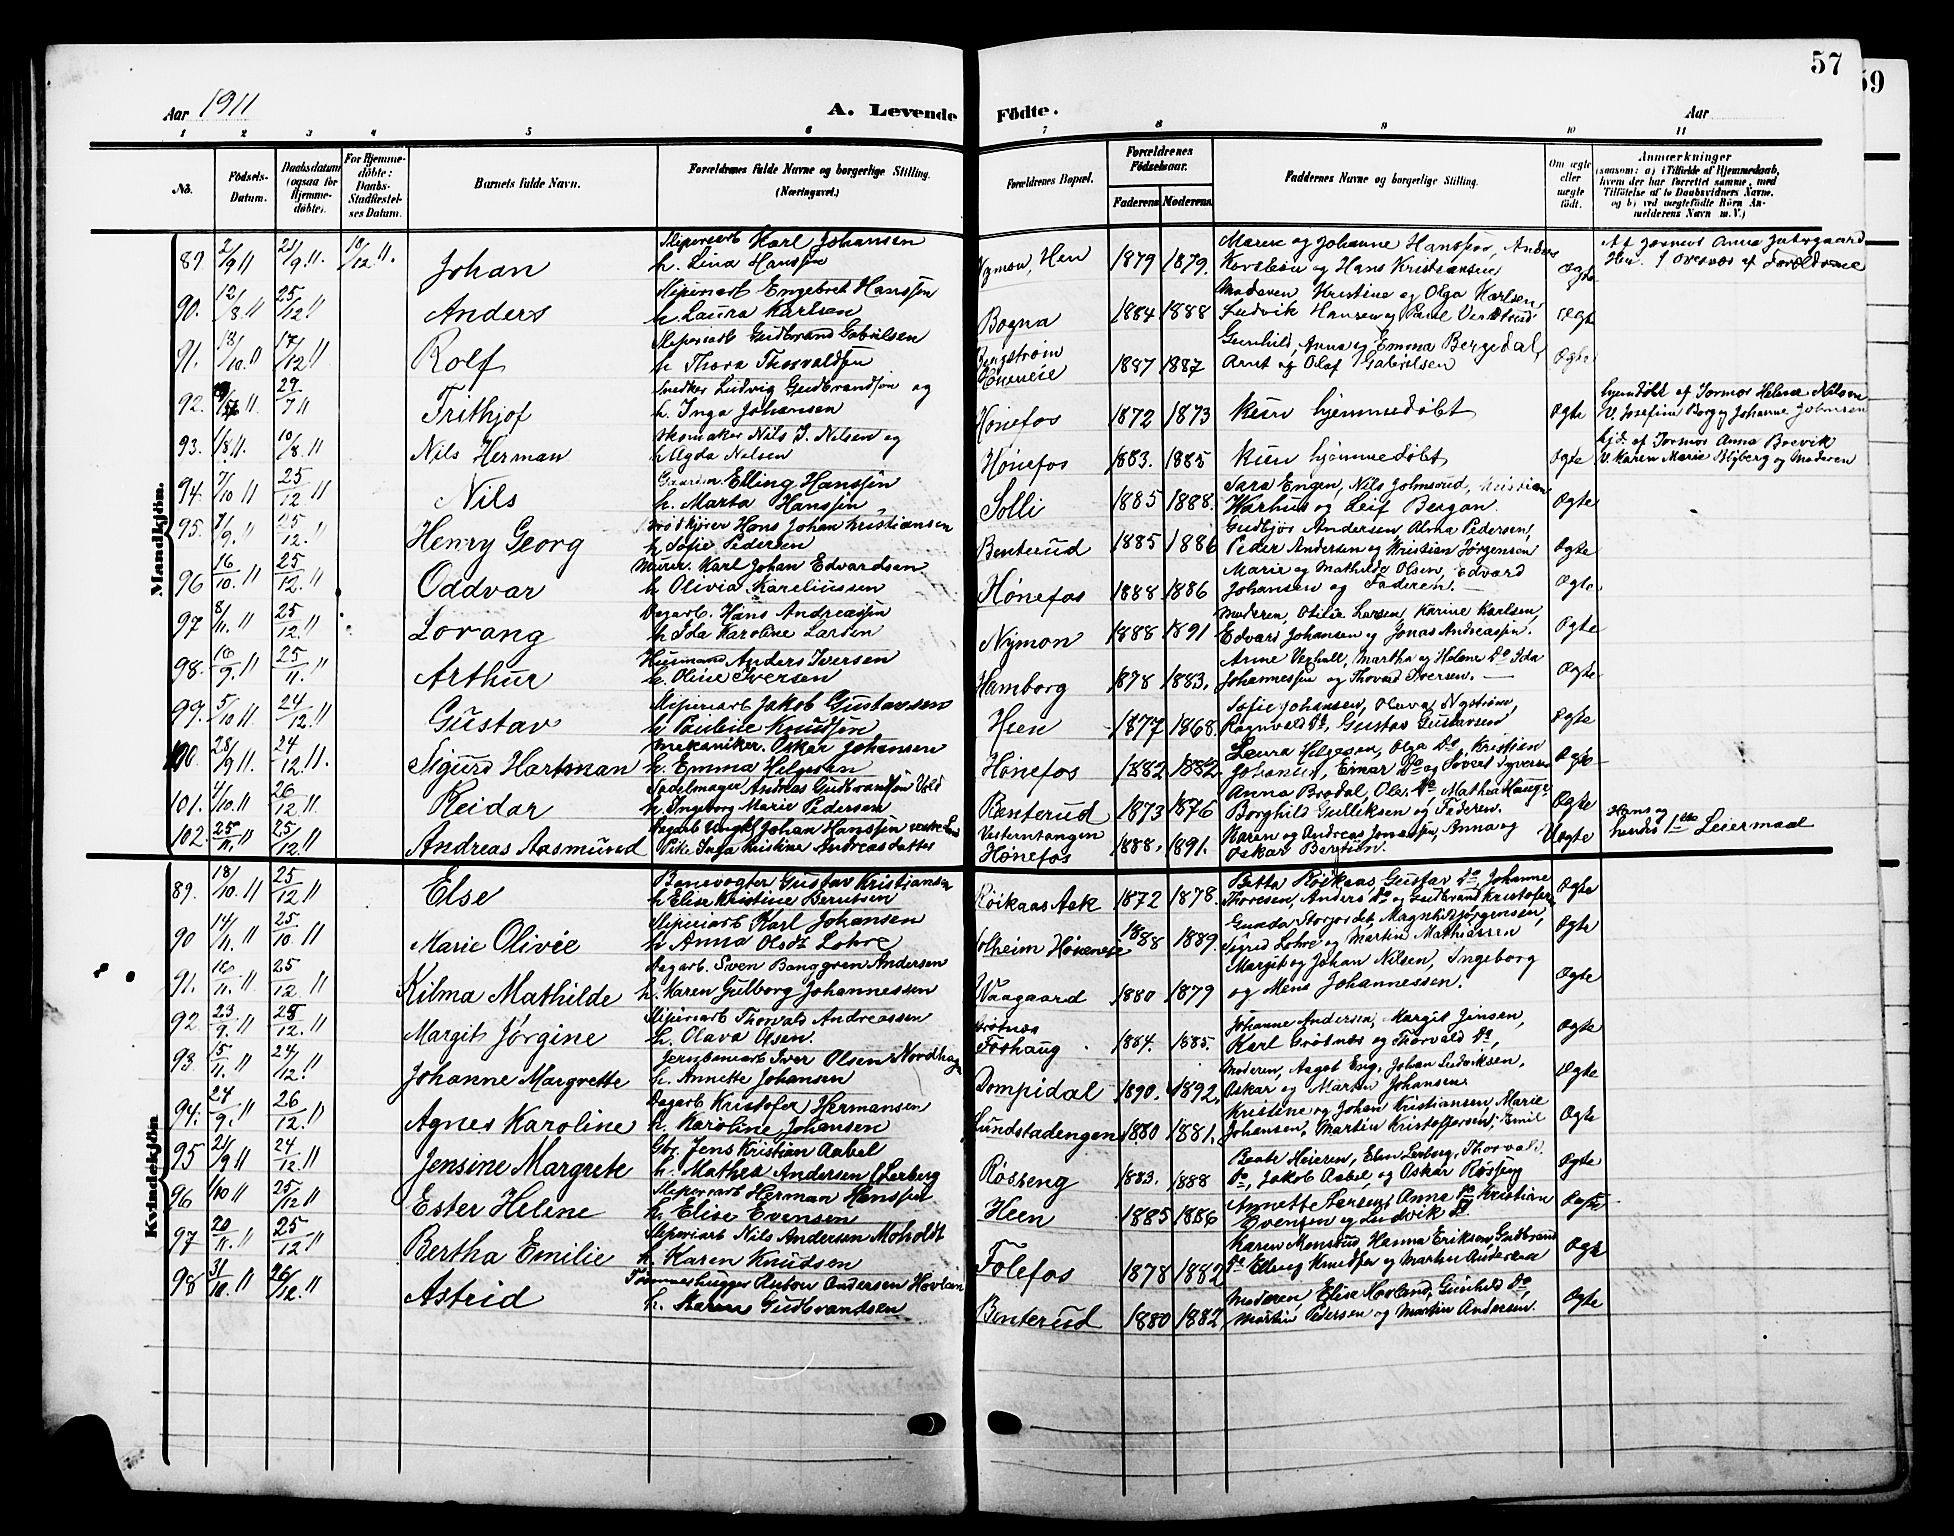 57
59
Aar 1911
A. Levende Fødte.
Aar
1 2 3 4 5 6 7 8 9 10 11
No.
Fødsels-Datum.
Daabsdatum (ogsaa for Hjemme-døbte).
For Hjemme-døbte: Daabs-Stadfæstel-ses Datum.
Barnets fulde Navn.
Forældrenes fulde Navne og borgerlige Stilling. (Næringsvei.)
Forældrenes Bopæl.
Forældrenes Fødselsaar.
Faderens. Moderens.
Faddernes Navne og borgerlige Stilling.
Om ægte eller uægte født.
Anmærkninger
(saasom: a) i Tilfælde af Hjemmedaab,
hvem der har forrettet samme, med
Tilføielse af to Daabsvidners Navne,
og b) ved uægtefødte Börn An-
melderens Navn m. V.)
Mandkjön.
89 2/9 11 Johan Sliperiarb Karl Johansen
h. Lina Hanssen Hen 1879 1879. Marie og Johanne
og Hans Kristiansen Ægte
90. 12/8 11 25/12 11 Anders Sliperiarb Engebret Hanssen
h. Laura Karlsen Bogna 1884 1888 Moderen Kristine og Olga Karlsen,
Ludvik Hansen og Ægte
91. 18/10 11 17/12 11 Rolf Sliperiarb Gudbrand Gabrielsen
h Thora Thorvaldsen Høneneie 1887 1887 Gunhild, Anna og Emma Bergedal,
Arnt og Olaf Gabrielsen Ægte
92. 29/7 11 Frithjof Snedker Ludvig Gudbrandsen og
h. Inga Johansen Hønefos 1872 1873 kun hjemmedøbt Ægte hjemdøbt af Jormor Helene Nilsen
V. Josefine Borg og Johanne
93. 1/8 11. 10/8 11 Nils Herman Skomaker Nils J. Nilsen og
h Agda Nilsen Hønefos 1883. 1885 kun hjemmedøbt Ægte hjd. af Jormor Anna Brevik
V. Karen Marie Myberg og Moderen
94. 7/10 11 25/12 11 Nils Gaardm. Elling Hanssen
h. Marta Hanssen Solli 1885 1888. Sara Engen, Nils
og Leif Bergan. Ægte
95. 7/9 11 25/12. 11 Henry Georg Hans Johan Kristiansen
h Sofie Pedersen Benterud 1885 1886 Andersen, Alma Pedersen,
Peder Andersen og Kristian Jørgensen Ægte
96 16/10. 11 25/12. 11 Oddvar Murer. Karl Johan Edvardsen
h Olivia Kareliussen Hønefos 1888 1886 Marie og Mathilde Olsen, Edvard
Johansen og Faderen. Ægte
97 8/11. 11 25/12. 11 Lorang Dagarb. Hans Andreassen
h Ida Karoline Larsen Nymon 1888 1891 Moderen, Otilie Larsen, Karine Karlsen,
Edvard Johansen og Jonas Andreassen. Ægte
98. 16/9. 11 25/11. 11 Arthur Husmand Anders Iversen
h. Oline Iversen Hamborg 1878 1883. Anne Martha og Helene Do Ida
Johannessen og Thorvald Iversen. Ægte
99. 5/10 11 24/12. 11 Gustav Sliperiarb Jakob Gustavsen
h Pauline Knudsen Heen 1877 1868. Sofie Johansen, Olava Nystrøm,
Ragnvald Do, Gustav Gustavsen Ægte
100. 28/9 11. 24/12. 11. Sigurd Hartman Mekaniker. Oskar Johansen
h. Emma Helgesen Hønefos 1882 1882. Laura Helgesen, Olga Do, Kristian
Johansen, Einar Do og Syversen Ægte
101. 4/10 11. 26/12. 11. Reidar Sadelmager Andreas Gudbrandsen Vold
h. Ingeborg Marie Pedersen Benterud 1873 1876 Anna Brodal, Ole Do Mathea Hauge
Borghild Gulliksen og Faderen. Ægte
102. 25/11 11 25/12. 11 Andreas Aasmund Dagarb Ungkl Johan Hanssen
Pike Inga Kristine Andreasdatter Vesterntangen
Hønefos 1888. 1891. Karen og Andreas Jonassen, Anna og
Oskar Berntsen. Uægte Hans og
hendes 1ste Leiermaal
Kvindekjön
89. 18/10. 11 25/12 11 Else Banevogter Gustav Kristiansen
h Elise Kristine Berntsen Röikaas Ask 1872 1878. Betta Röikaas, Gustav Do, Johanne
Thoresen, Anders Do og Gudbrand Kristofersen Ægte
90 14/11. 11 25/10. 11 Marie Olivée Sliperiarb Karl Johansen
h Anna Olsdt Lohre Solheim Høneneie 1888 1889. Gunda Storjordet, Magnhild Jørgensen,
Sigrid Lohre og Martin Mathiassen Ægte
91. 16/11. 11 25/12 11 Kilma Mathilde Dagarb. Sven Banggren Andersen
h. Karen Gulborg Johannessen Waagaard 1880 1879 Margit og Johan Nilsen, Ingeborg
og Mens Johannessen. Ægte
92 23/9. 11 28/12. 11 Margit Jörgine Sliperiarb Thorvald Andreassen
h. Olava Olsen. Grötnes
Foshaug 1884. 1885. Johanne Andersen, Margit Jensen,
Karl Grötnæs og Thorvald Do, Ægte
93. 15/11. 11 24/12. 11 Johanne Margrette Jernbanearb Iver Olsen Nordhag
h. Annette Johansen Dompidal 1890. 1892, Moderen, Aagot Eng, Johan Ludviksen,
Oskar og Martin Johansen. Ægte
94. 24/9. 11 26/12. 11 Agnes Karoline Dagarb Kristofer Hermansen
h. Karoline Johansen Lundstadengen 1880 1881. Kristine og Johan Kristiansen, Marie
Johansen, Martin Kristoffersen, Emil Ægte
95 21/9 11 24/12. 11 Jensine Margrete Gbr. Jens Kristian Aabel
h. Mathea Andersen (Lerberg Røsseng 1883. 1888 Beate Heieren, Elen Lerberg, Thorvald
Do, Jakob Aabel, og Oskar Røsseng Ægte
96 1/10 11 25/12 11 Ester Helene Sliperiarb Herman Hanssen
h. Elise Evensen Heen 1885 1886 Annette Larsen, Anna Do Kristian
Evensen og Ludvik Do. Ægte
97 20/11. 11 25/12 11 Bertha Emilie Sliperiarb Nils Andersen Moholdt
h. Karen Knudsen Follefos 1878 1882 Karen Monserud, Hanna Eriksen Gudbrand
Do Elling Knudsen og Martin Andersen Ægte
98 31/10. 11 26/12. 11 Astrid Tømmerhugger Anton Andersen Hovland
h. Maren Gudbrandsen Benterud 1880 1882, Moderen, Elise Hovland, Gunhild Do,
Martin Pedersen og Martin Andersen. Ægte